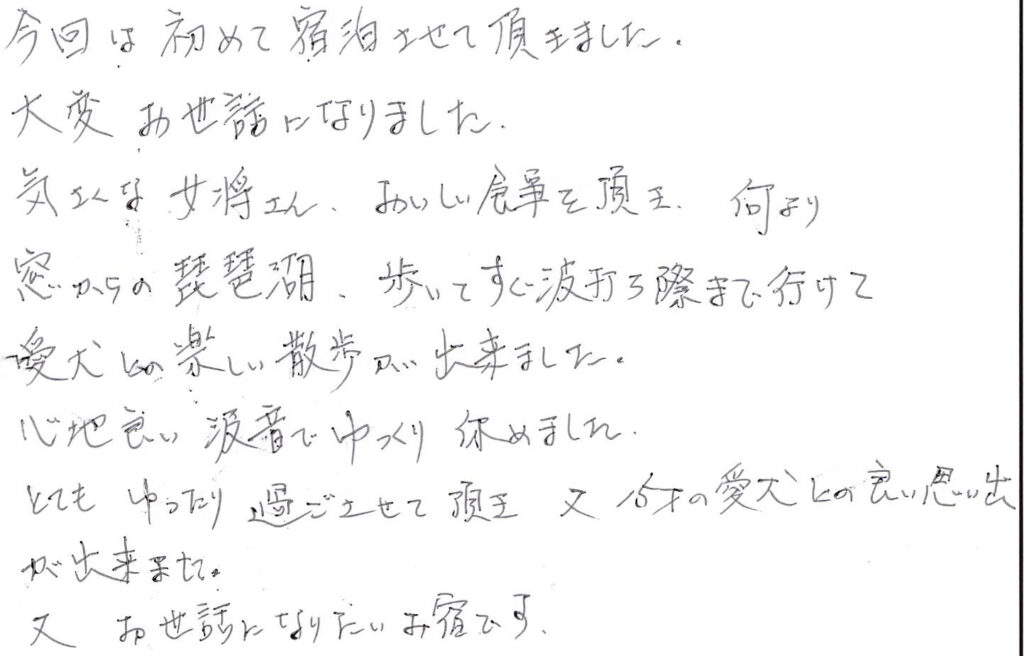 今回は初めて宿泊させて頂きました.
大変お世話になりました.
気さくな女将さん、おいしい食事を頂き、何より
窓からの琵琶湖、歩いてすぐ波打ち際まで行けて
愛犬との楽しい散歩が出来ました。
心地良い波音でゆっくり休めました.
とてもゆったり過ごさせて頂き 又 才の愛犬との良い思い出
が出来ました。
又 お世話になりたいお宿です.